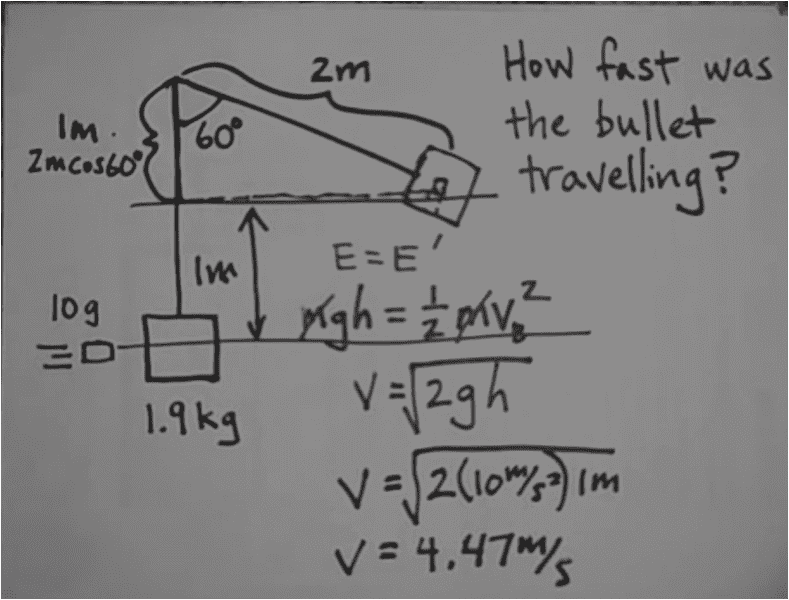 How fast was
the bullet
travelling?
2m
1m.
2mcos60°
60°
1m
10g
1.9kg
E = E'
mgh = 1/2 mv_B^2
V = √2gh
V = √2(10m/s²)1m
V = 4.47m/s